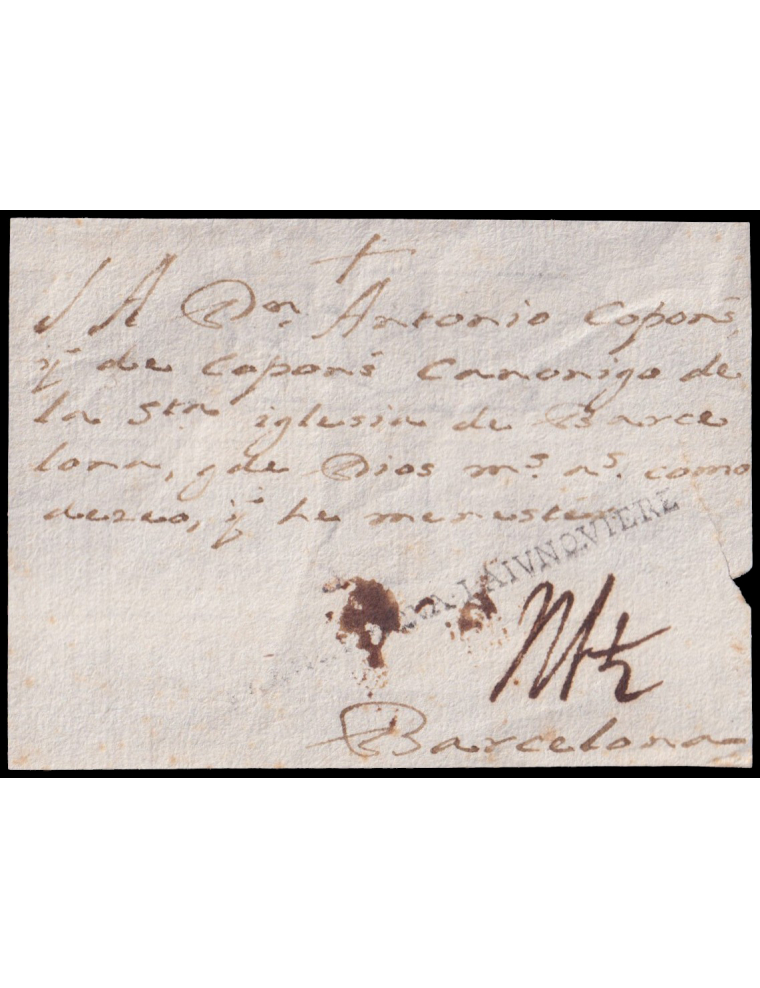 A Dn. Antonio Copons,
ÿ de Copons Canonigo de
la Sta iglesia de Barce
lona, gde Dios ms. as. como
dezeo, ÿ he menester
LAIVNQVIERE
Barcelona